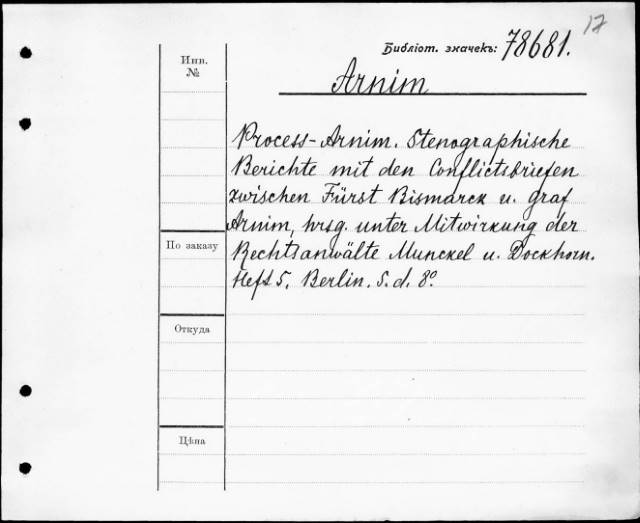 17
Библіот. значекъ: 78681.
Инв.
№
Arnim
Process-Arnim. Stenographische
Berichte mit den Conflictsbriefen
zwischen Fürst Bismarck u. Graf
Arnim, hrsg. unter Mitwirkung der
По заказу
Rechtsanwälte Munckel u. Dockhorn.
Heft 5. Berlin. S. d. 8°.
Откуда
Цѣна